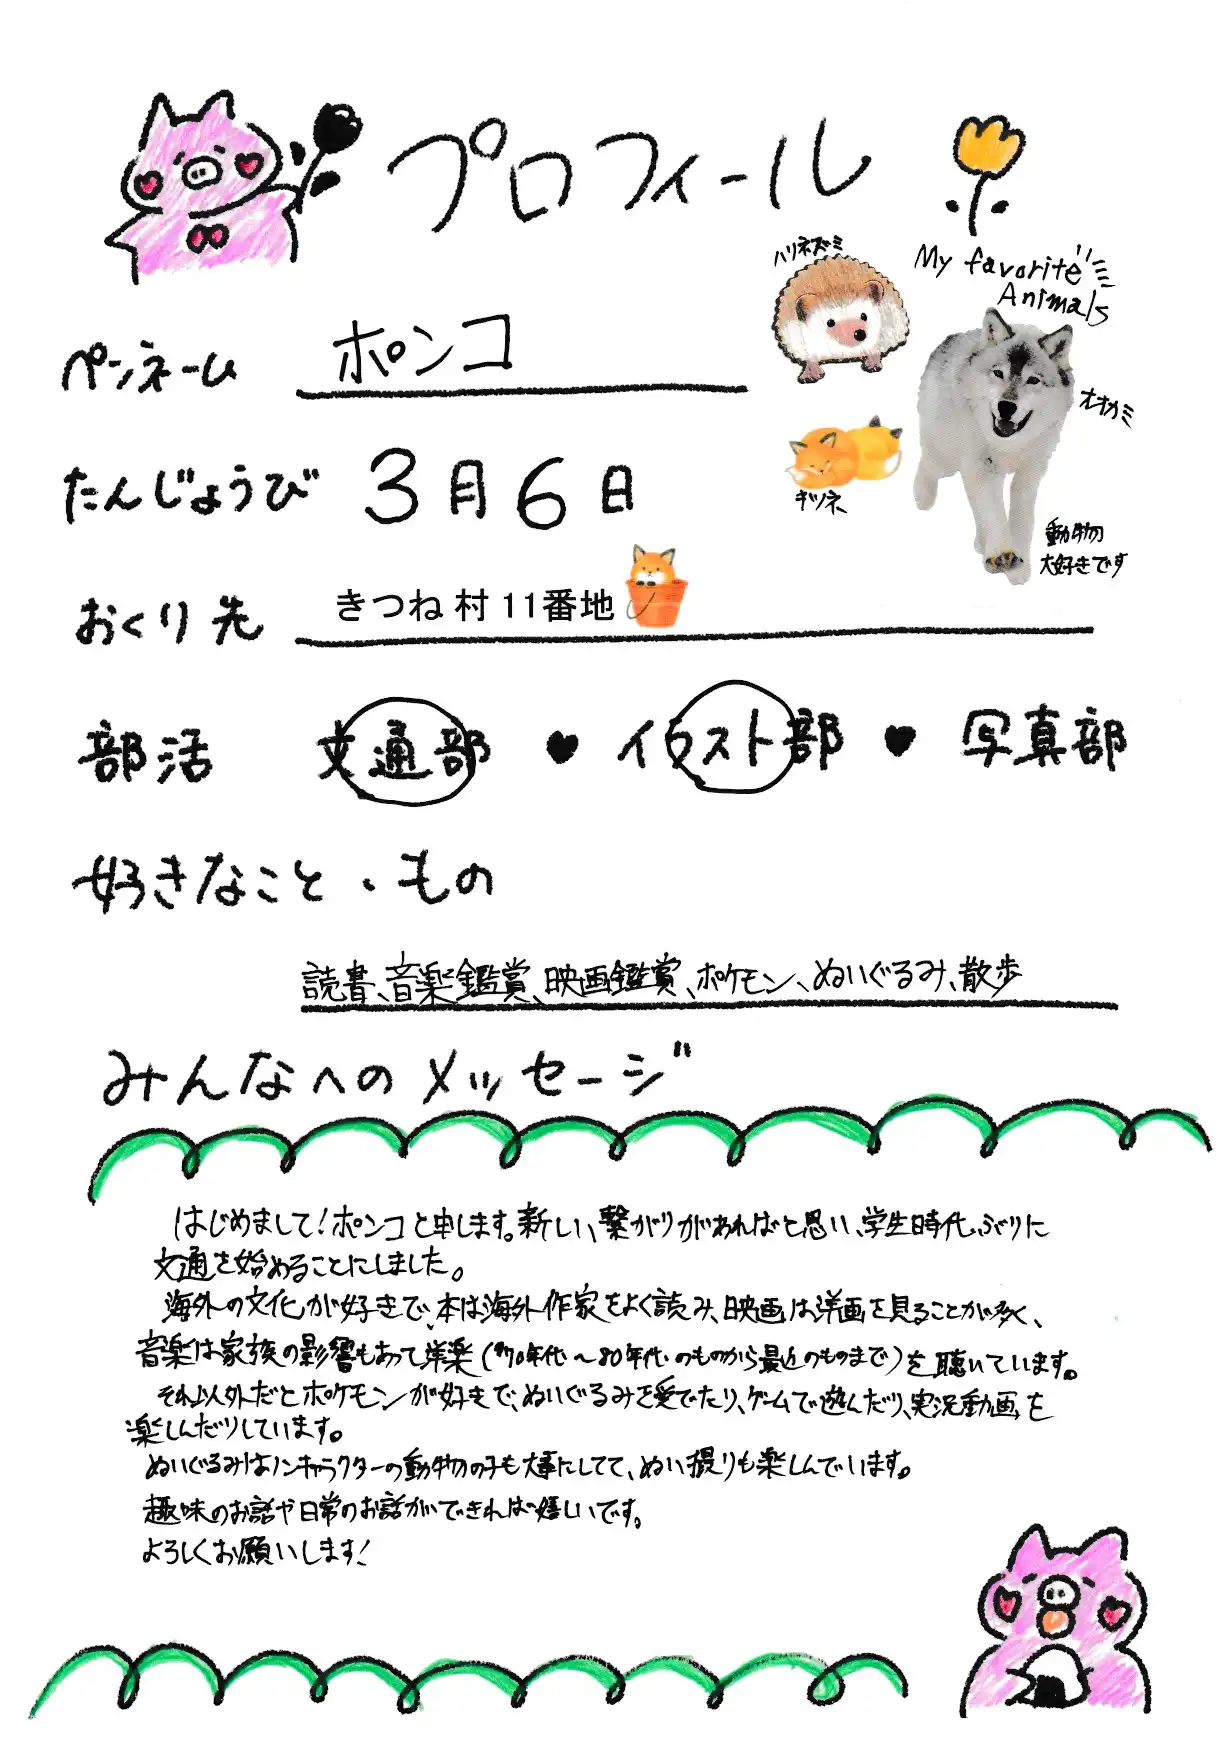 プロフィール
My favorite
Animals
ハリネズミ
オオカミ
キツネ
動物の
大好きです
ペンネーム ポンコ
たんじょうび 3月6日
おくり先 きつね村 11番地
部活 文通部 ♥ イラスト部 ♥ 写真部
好きなこと・もの
読書、音楽鑑賞、映画鑑賞、ポケモン、ぬいぐるみ、散歩
みんなへのメッセージ
はじめまして!ポンコと申します。新しい繋がりがあればと思い、学生時代ぶりに
文通を始めることにしました。
海外の文化が好きで、本は海外作家をよく読み、映画は洋画を見ることが多く、
音楽は家族の影響もあって洋楽('70年代〜80年代のものから最近のものまで)を聴いています。
それ以外だとポケモンが好きで、ぬいぐるみを愛でたり、ゲームで遊んだり、実況動画を
楽しんだりしています。
ぬいぐるみはノンキャラクターの動物の子も大事にしてて、ぬい撮りも楽しんでいます。
趣味のお話や日常のお話ができれば嬉しいです。
よろしくお願いします!